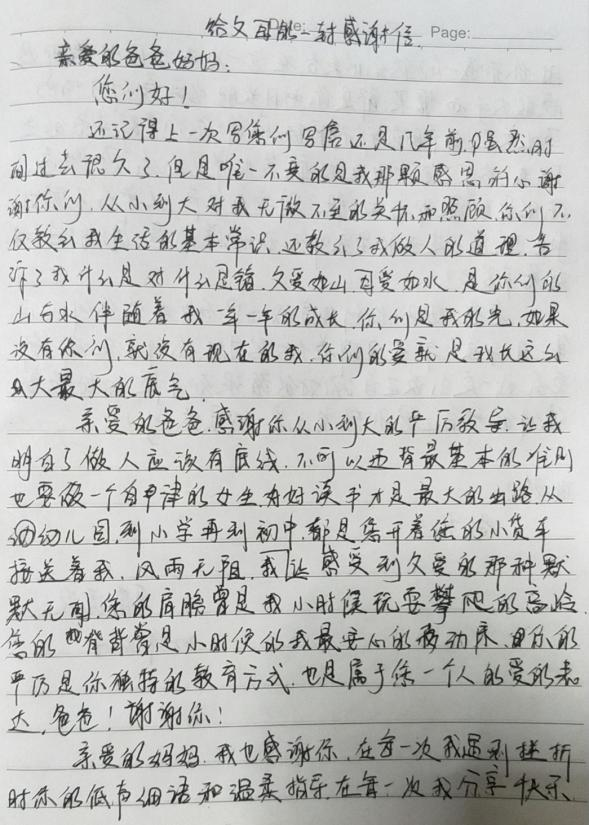 给父母的一封感谢信
Page:
亲爱的爸爸妈妈:
您们好!
还记得上一次写您们写信还是几年前,虽然时
间过去很久了,但是唯一不变的是我那颗感恩的心谢
谢你们,从小到大对我无微不至的关怀和照顾,你们不
仅教会我生活的基本常识,还教会了我做人的道理,告
诉了我什么是对什么是错,父爱如山,母爱如水,是你们的
山与水伴随着我一年一年的成长,你们是我的光,如果
没有你们,就没有现在的我,你们的爱就是我长这么
大最大的底气.
亲爱的爸爸,感谢你从小到大的严厉教导,让我
明白了做人应该有底线,不可以违背最基本的准则
也要做一个自律的女生,好好读书才是最大的出路,从
幼儿园,到小学再到初中,都是您开着您的小货车
接送着我,风雨无阻,我让感受到父爱的那种默
默无闻,您的肩膀曾是我小时候玩耍攀爬的高地
您的背曾是小时候的我最安心的移动床,你的
严厉是你独特的教育方式,也是属于你一个人的爱的表
达,爸爸!谢谢你!
亲爱的妈妈,我也感谢你,在每一次我遇到挫折
时你的低声细语和温柔指导,在每一次我分享快乐